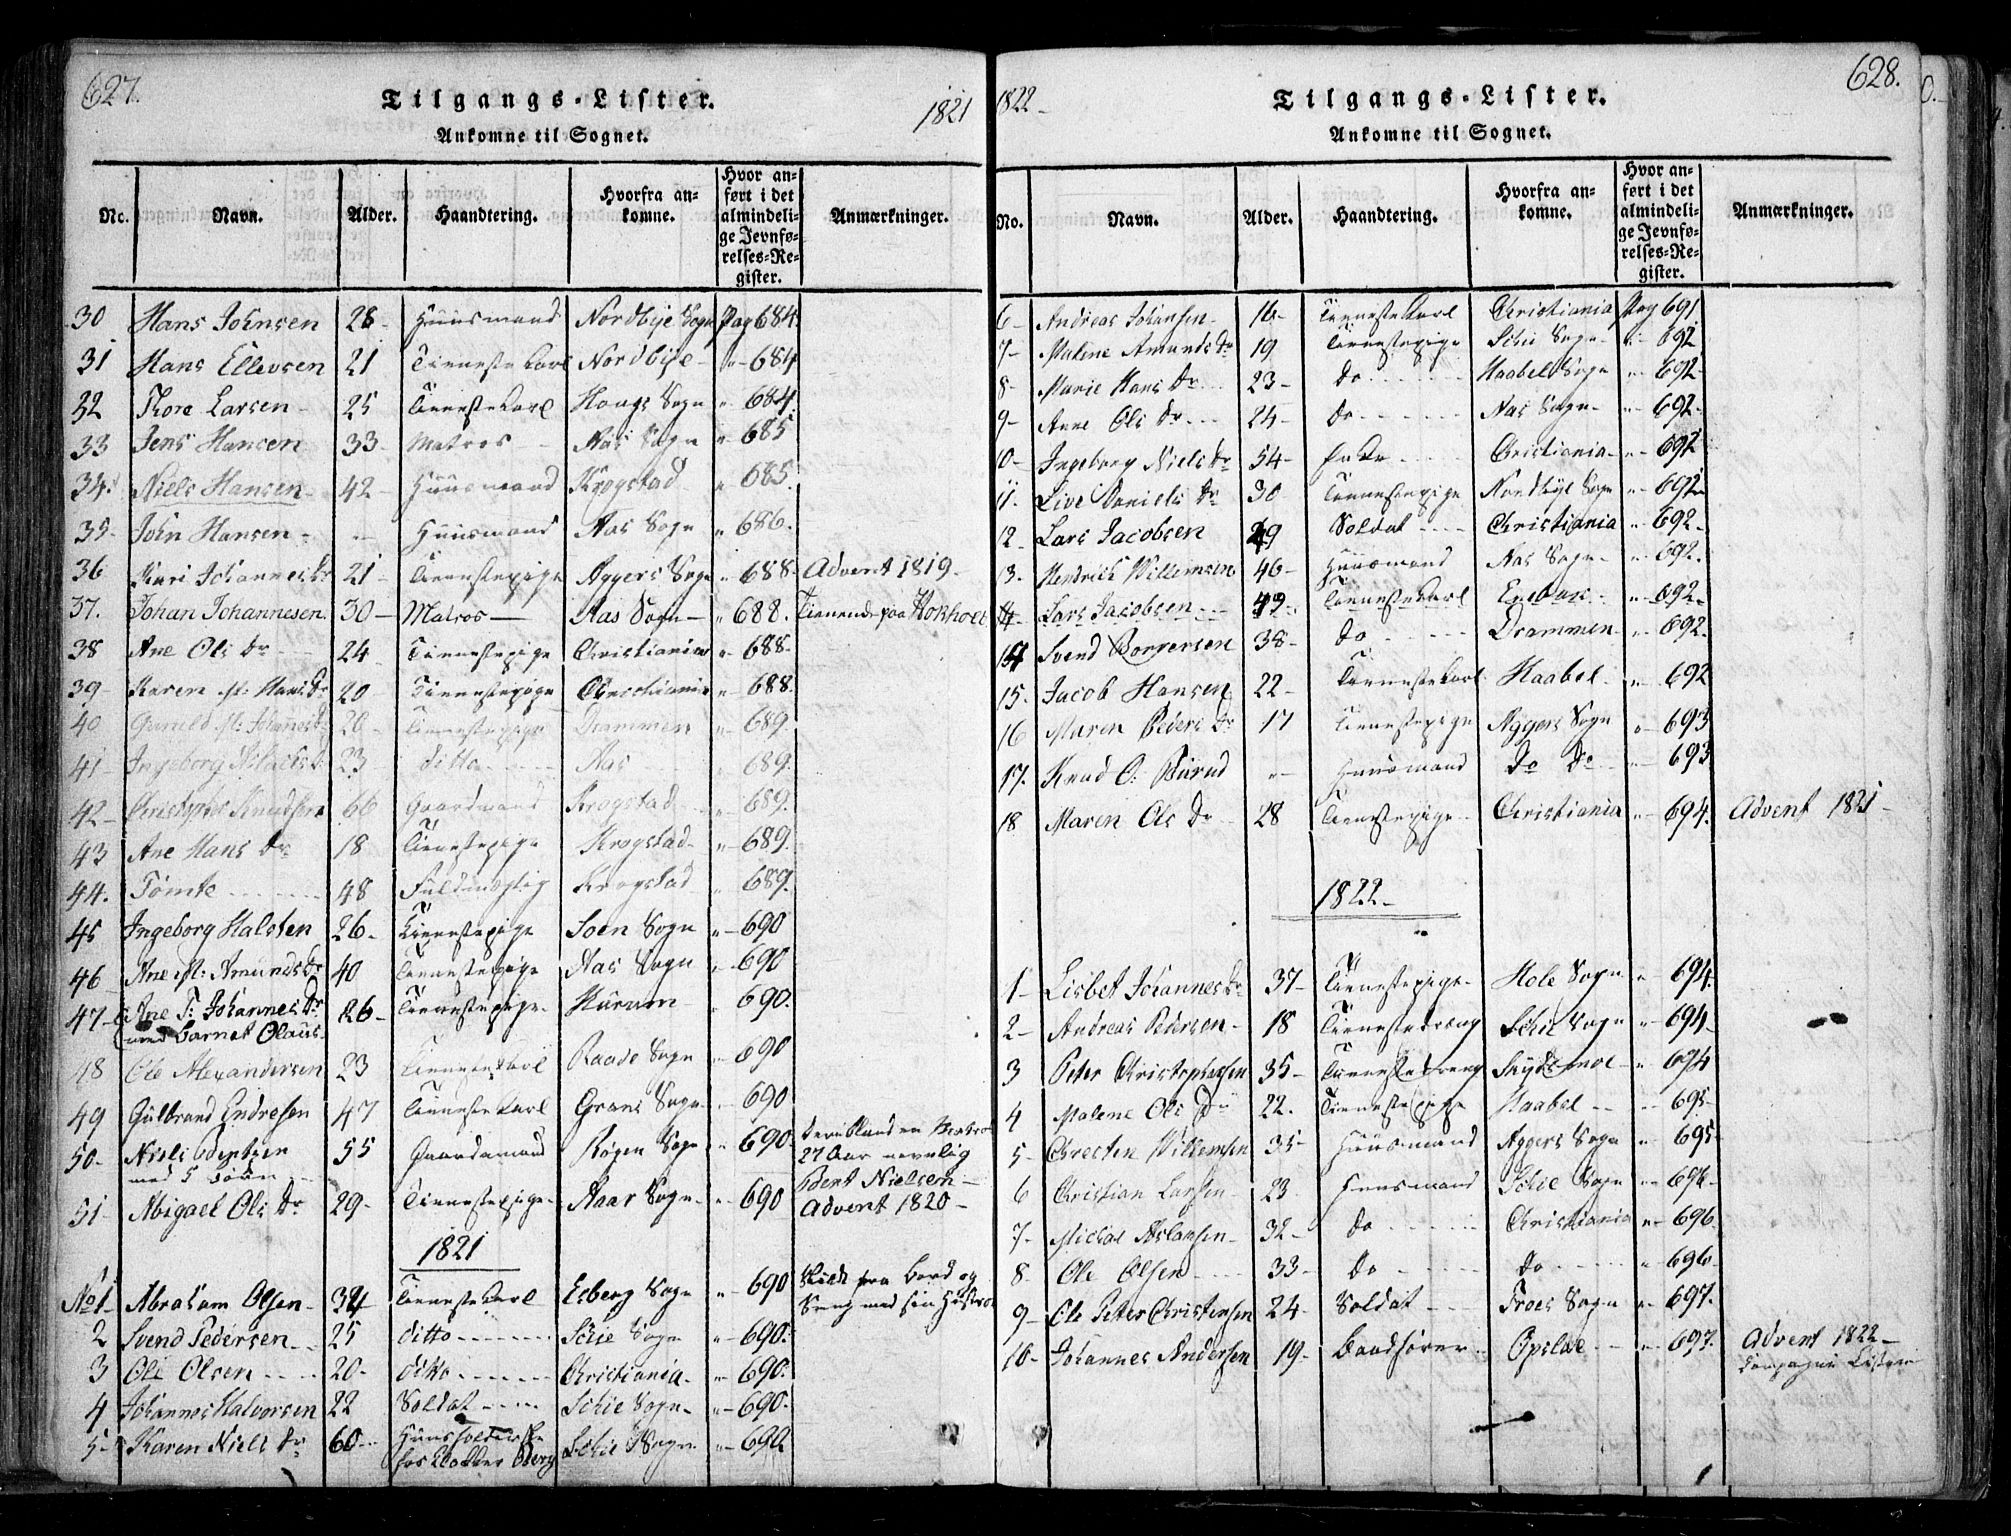 627.
Tilgangs-Lister.
1821
Ankomne til Sognet.
No. Navn. Alder. Haandtering. Hvorfra ankomne. Hvor anført i det almindelige Jevnførelses-Register. Anmærkninger.
30 Hans Johnsen 28 Huusmand Nordbye Sogn Pag 684
31 Hans Ellevsen 21 Tienestekarl Nordbye - " 684
32 Thore Larsen 25 Tienestekarl Haugs Sogn " 684
33 Jens Hansen 33 Matros Aas Sogn " 685
34. Niels Hansen 42 Huusmand Krogstad " 685.
35 John Hansen - Huusmand Aas Sogn " 686.
36 Kari Johannes Dr 21 Tienestepige Aggers Sogn " 688 Advent 1819
37. Johan Johannesen 30 Matros Aas Sogn " 688. Tienende paa Hokholt
38 Ane Ols Dr 24 Tienestepige Christiania " 688
39 Karen M: Hans Dr 20 Tienestepige Christiania " 688.
40 Gunild M: Johanes Dr 20 Tienestepige Drammen " 689.
41 Ingeborg 23 ditto Aas 689.
42 Christopher Knudsen 66 Gaardmand Krogstad " 689.
43 Ane Hans Dr 18 Tienestepige Krogstad " 689.
44. Tömte 48 Fuldmægtig Krogstad " 689.
45 Ingeborg Halsten 26 Tienestepige Soen Sogn " 690
46 Ane M: Amunds Dr 40 Tienestepige Aas Sogn " 690
47 Ane T: Johannes Dr 26 Tienestepige Hurum 690.
med Barnet Olaus
48 Ole Alexandersen 23 Tienestekarl Raade Sogn " 690
49 Gulbrand Endresen 47 Tienestekarl Grans Sogn 690
50 Niels Bentzen 55 Gaardmand Røgen Sogn " 690 Deriblandt en Matros
med 5 Börn 27 Aar nevnlig
Bent Nielsen
51 Abigael Ols Dr 29 Tienestepige Haar Sogn " 690 Advent 1820
1821
No 1 Abraham Olsen 34 Tienestekarl Edsberg Sogn " 690 Skilt fra Bord og
Seng med sin Hustroe
2 Svend Pedersen 25 ditto Schie Sogn " 690.
3 Ole Olsen 20 ditto Christiania " 690.
4 Johannes Halvorsen 22 Soldat Schie Sogn " 690
5 Karen Niels Dr 60 Huusholderske Schie Sogn " 690
hos Klokker Oberg
1822
Tilgangs-Lister.
628.
Ankomne til Sognet.
No. Navn. Alder. Haandtering. Hvorfra ankomne. Hvor anført i det almindelige Jevnførelses-Register. Anmærkninger.
6 Andreas Johansen 16 Tienestekarl Christiania Pag 691
7 Malene Amunds Dr 19 Tienestepige Schie Sogn " 692
8 Marie Hans Dr 23 do Haabel Sogn " 692
9 Anne Ols Dr 24 do Aas Sogn " 692
10 Ingeborg Niels Dr 54 Enke Christiania " 692
11. Live Daniels Dr 30 Tienestepige Nordbye Sogn " 692
12 Lars Jacobsen 29 Soldat Christiania " 692
13. Hendrich Willemsen 46 Huusmand Aas Sogn " 692.
14 Lars Jacobsen Tienestekarl " 692
14 Svend Borgersen 38 do Drammen " 692
15. Jacob Hansen 22 Tienestekarl Haabel " 692
16 Maren Peders Dr 17 Tienestepige Aggers Sogn " 693
17. Knud O: Burud " Huusmand do do " 693
18 Maren Ols Dr 28 Tienestepige Christiania " 694. Advent 1821
1822
1 Lisbet Johannes Dr 37 Tienestepige Hole Sogn " 694.
2 Andreas Pedersen 18 Tienestedreng Schie Sogn " 694
3 Peter Christophersen 35 Tienestedreng Skydsmoe " 694
4 Malene Ols Dr 22. Tienestepige Haabel " 695
5 Christen Willemsen 35 Huusmand Aggers Sogn " 695
6 Christian Larsen 23 Huusmand Schie Sogn " 696
7 Michal Aslaksen 32 do Christiania " 696
8 Ole Olsen 33 do do " 696
9 Ole Peter Christensen 24 Soldat Froes Sogn " 697.
10 Johannes Andersen 19 Baadfører Opsloe " 697. Advent 1822